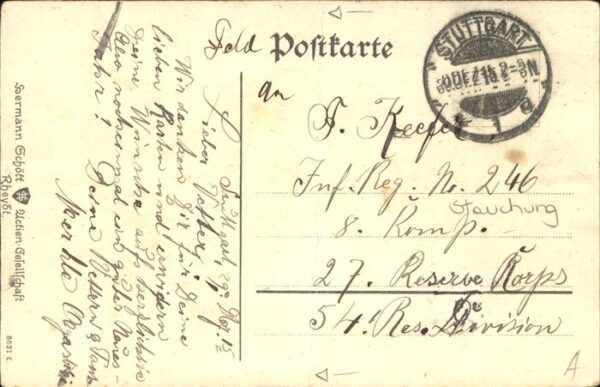 Feld Postkarte
STUTTGART
30.DEZ.15. 2-3N
1
an
J. Keefer
Inf. Reg. No. 246
Stauchung
8. Komp.
27. Reserve Korps
54. Res. Division
Stuttgart, 29. Dez. 15
Lieber Vetter!
Wir danken Dir für Deine
lieben Karten und
Deine Wünsche auf herzlichste
Also nochmal ein gutes Neues-
Jahr!
Deine Vettern &
Hermann Schött Actien-Gesellschaft
Rheydt.
8031 E.
A